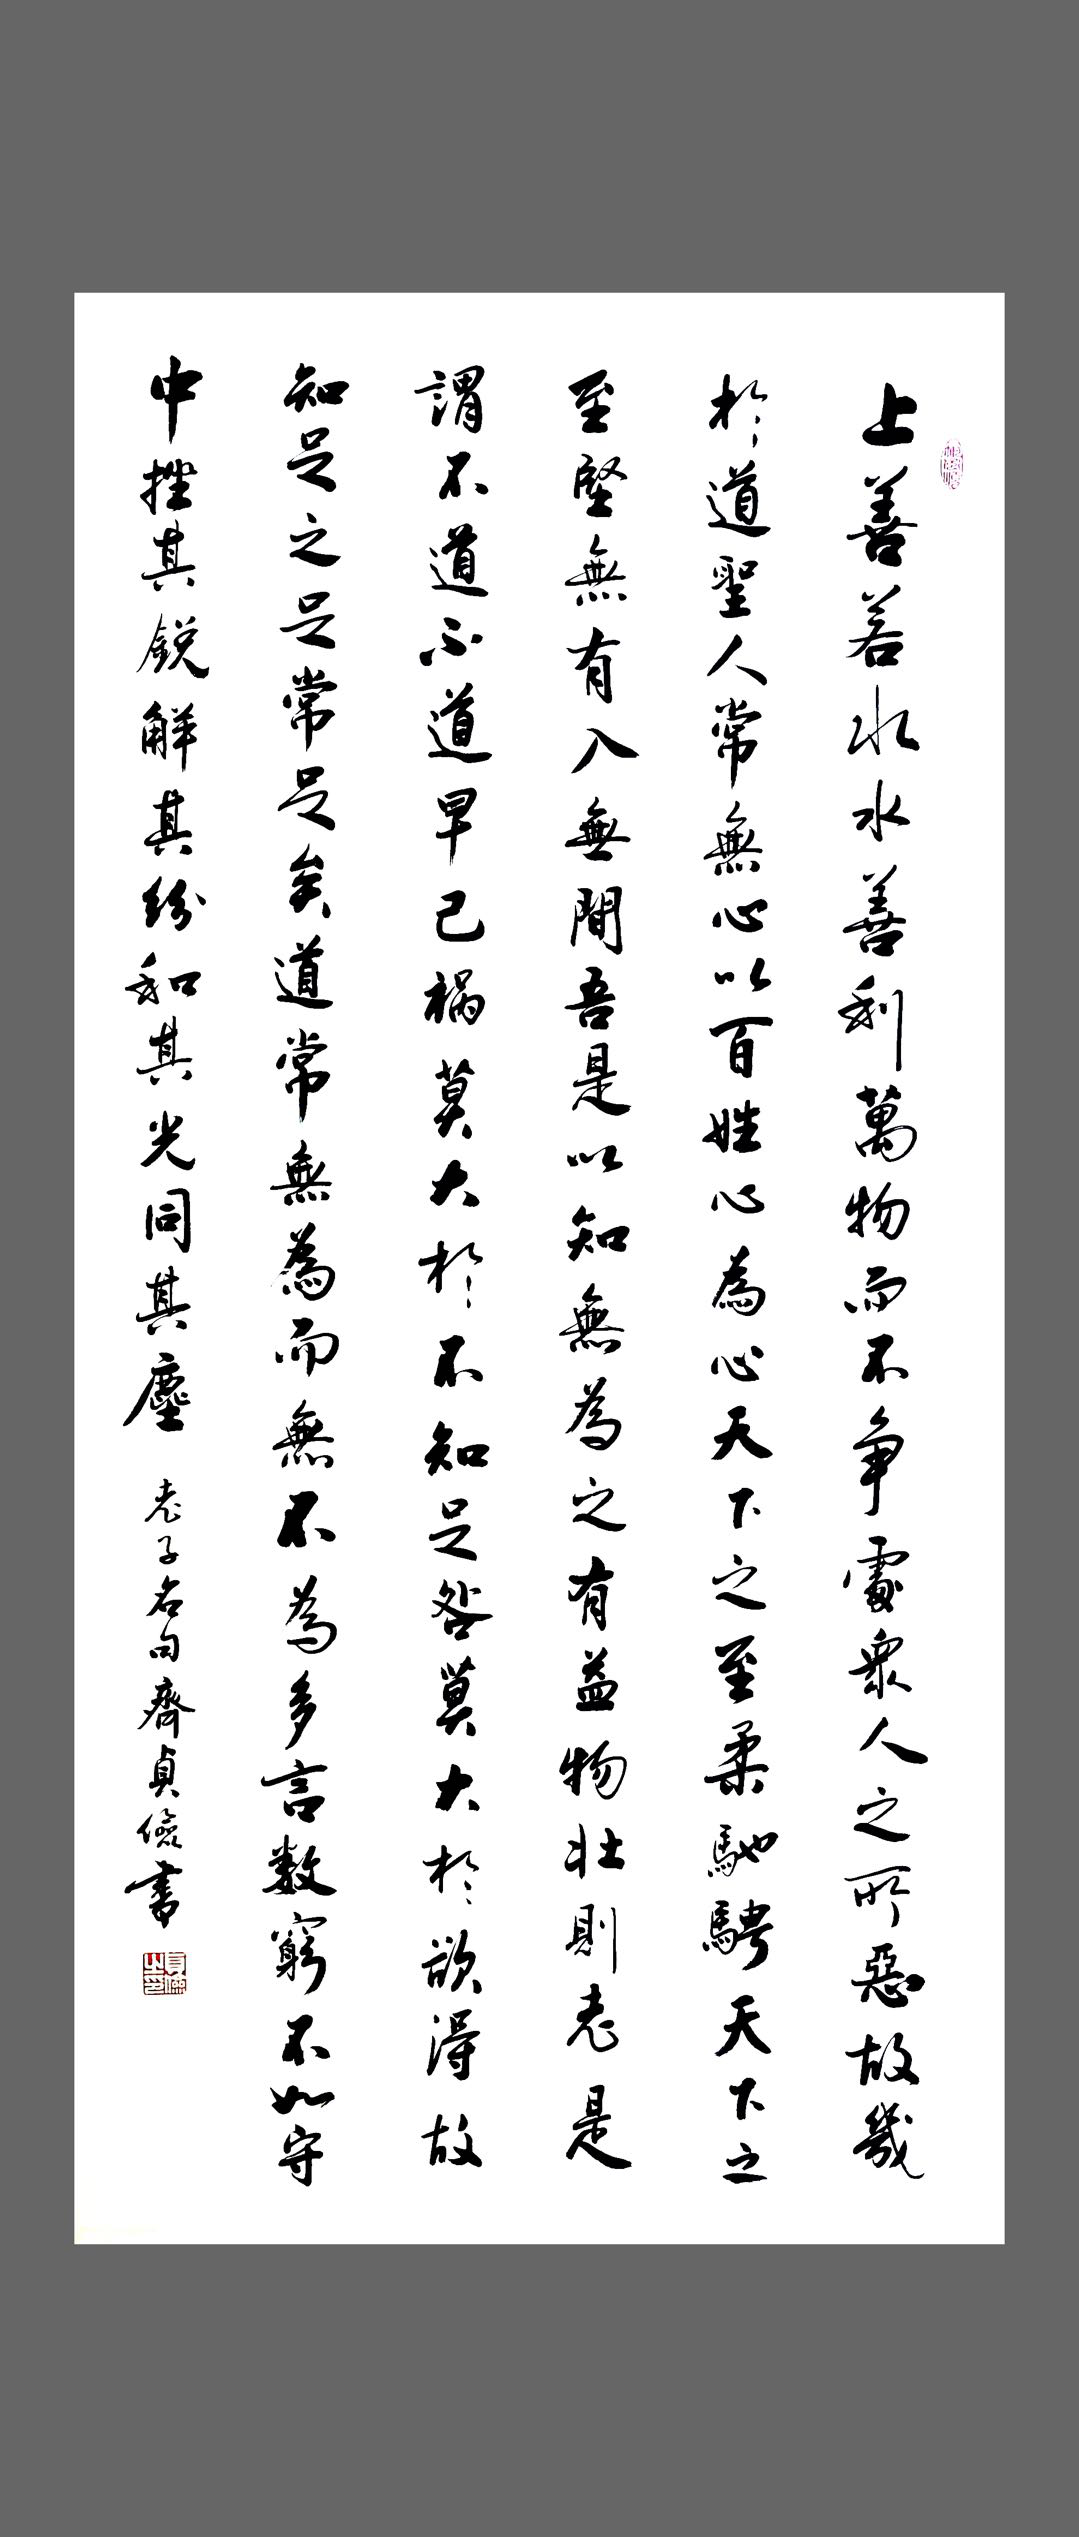 上善若水水善利萬物而不争處衆人之所惡故幾
於道聖人常無心以百姓心為心天下之至柔馳騁天下之
至堅無有入無間吾是以知無為之有益物壯則老是
謂不道不道早已禍莫大於不知足咎莫大於欲得故
知足之足常足矣道常無為而無不為多言数窮不如守
中挫其銳解其纷和其光同其塵
老子名句齊貞儉書